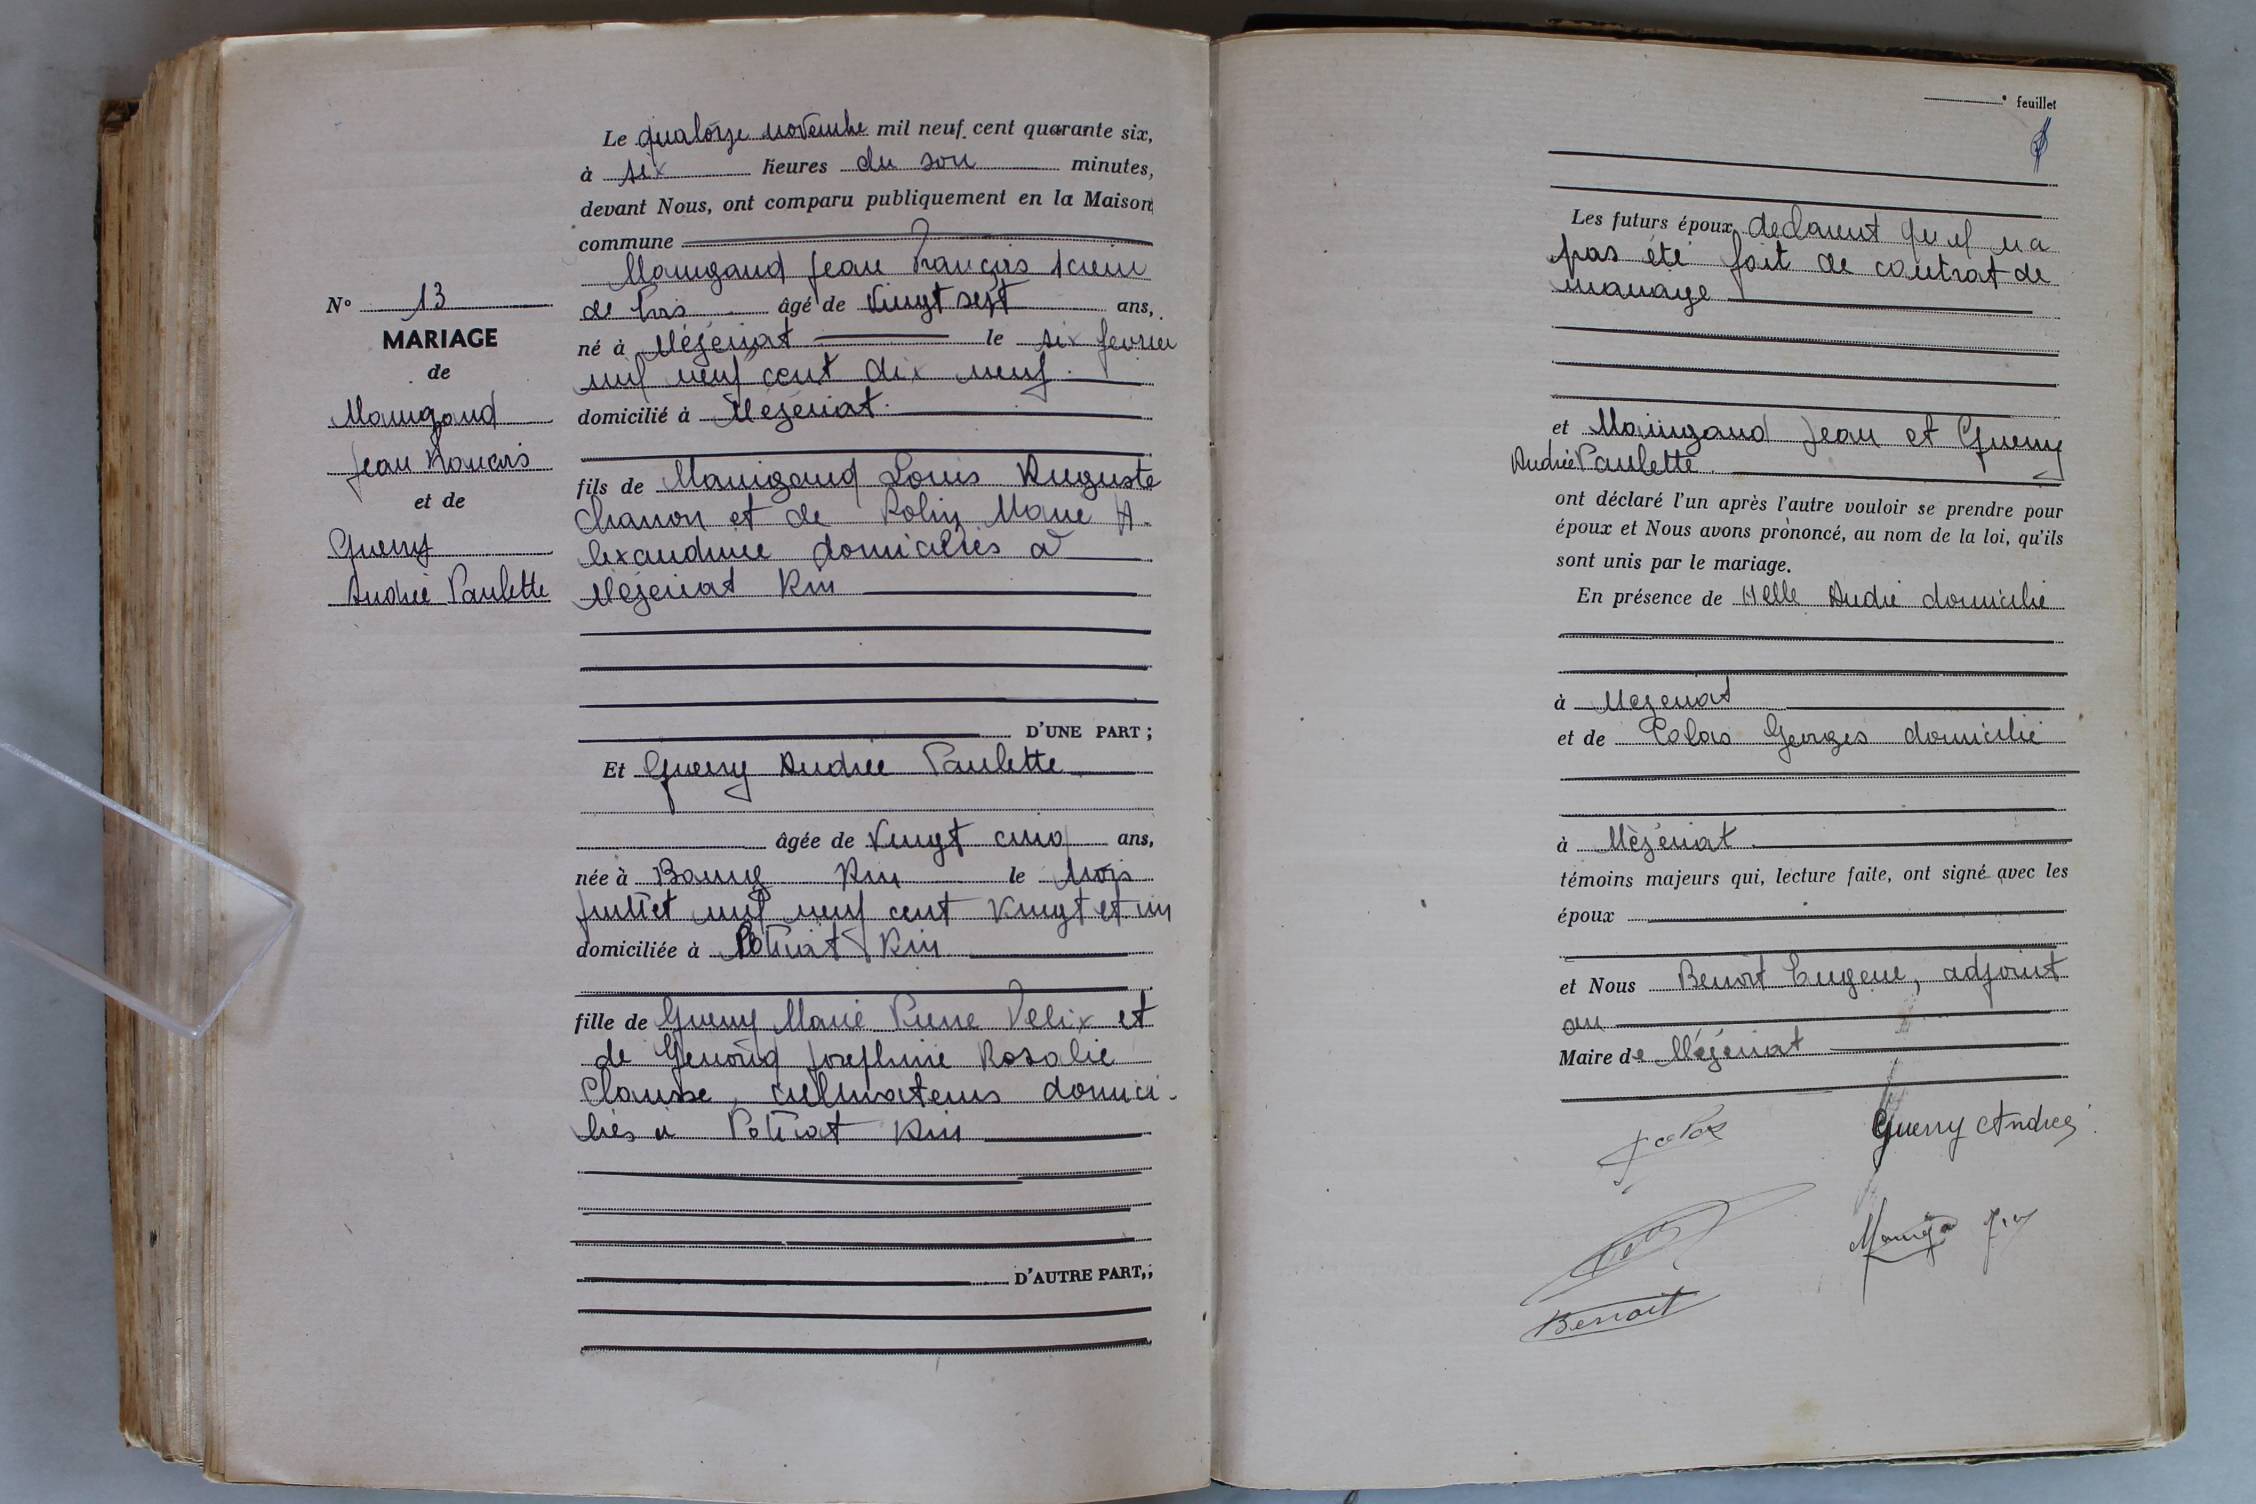 Le quatorze novembre mil neuf cent quarante six,
à six heures du soir minutes,
devant Nous, ont comparu publiquement en la Maison
commune
Maingaud Jean François scieur
de bois âgé de vingt sept ans,
né à Mézériat le six février
mil neuf cent dix neuf.
domicilié à Mézériat.
fils de Maingaud Louis Auguste
Charron et de Robin Marie A
lexandrine domiciliés à
Mézériat Ain
D'UNE PART ;
Et Guerry Andrée Paulette
âgée de vingt cinq ans,
née à Ain le trois
juillet mil neuf cent vingt et un
domiciliée à Polliat Ain
fille de Guerry Marie Pierre Félix et
de Genoud Joséphine Rosalie
cultivateurs domici-
liés à Polliat Ain
D'AUTRE PART,;
N° 13
MARIAGE
de
Maingaud
Jean François
et de
Guerry
Andrée Paulette
feuillet
Les futurs époux declarent qu'il n'a
pas été fait de contrat de
mariage
et Maingaud Jean et Guerry
Andrée Paulette
ont déclaré l'un après l'autre vouloir se prendre pour
époux et Nous avons prononcé, au nom de la loi, qu'ils
sont unis par le mariage.
En présence de André domicilié
à Mezeriat
et de Colas Georges domicilié
à Mézériat
témoins majeurs qui, lecture faite, ont signé avec les
époux
et Nous Benoît Eugene, adjoint
au
Maire de Mézériat
Guerry Andrée
Benoit